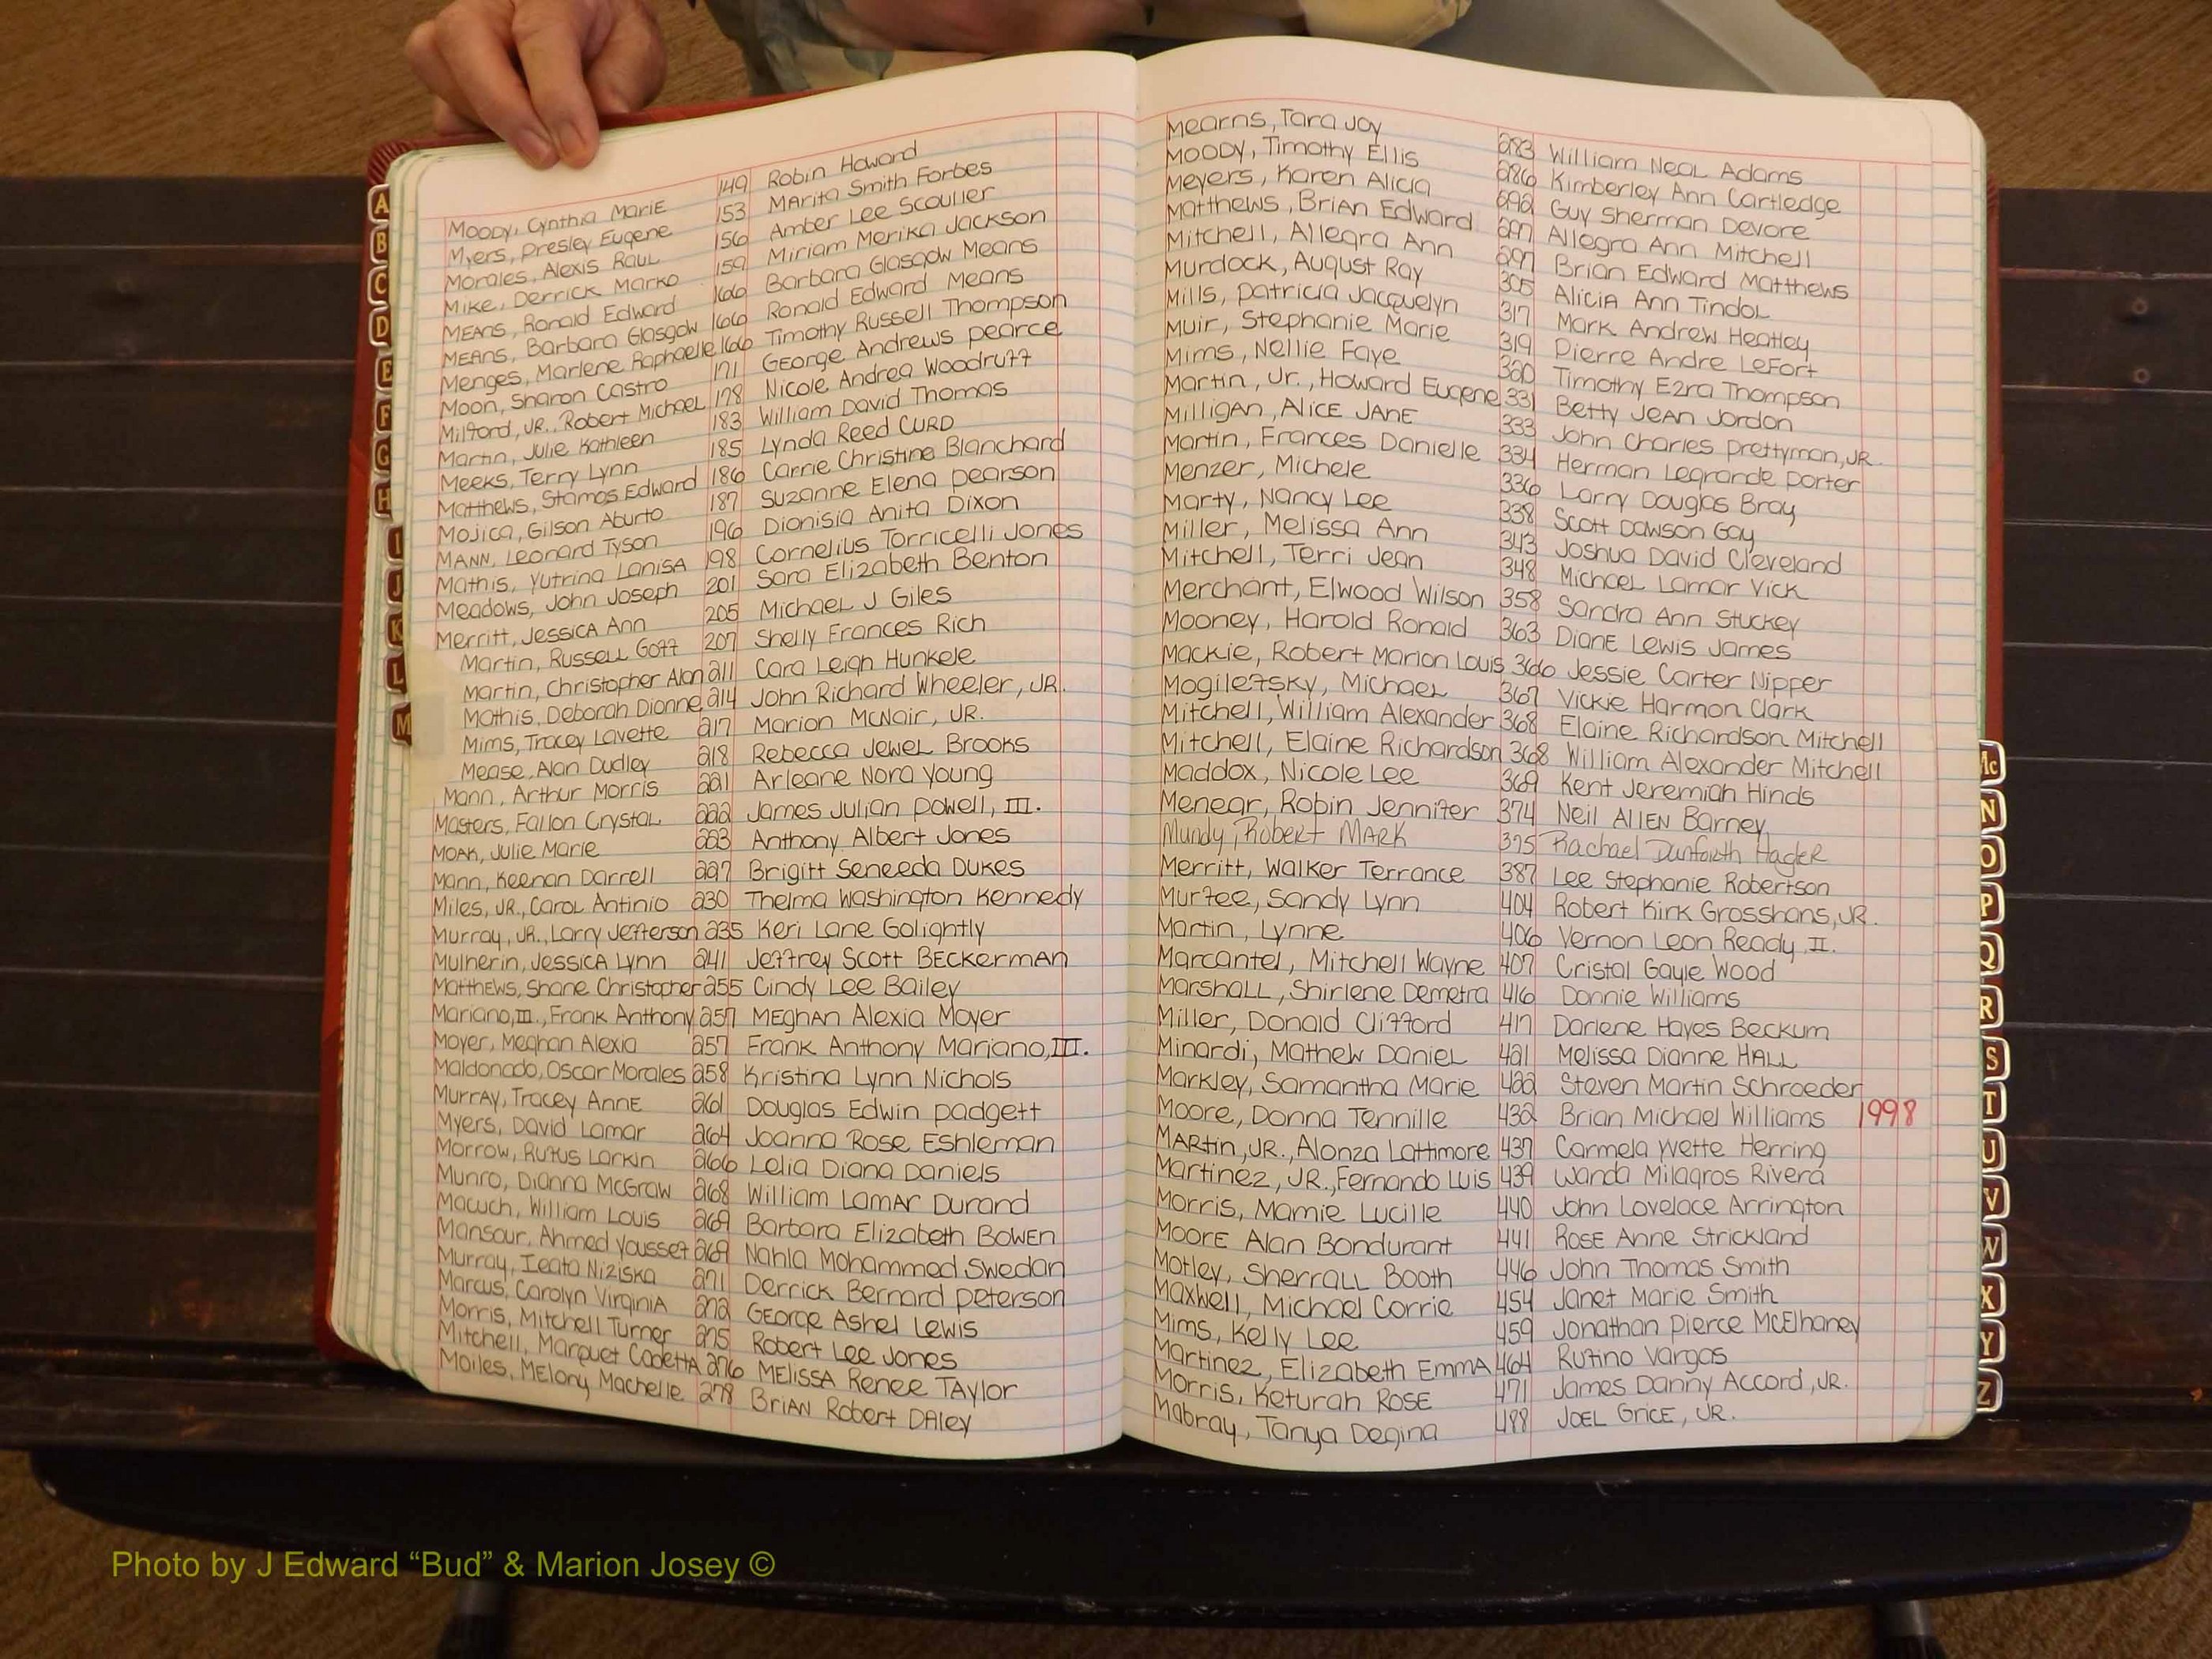 Moody, Cynthia Marie 149 Robin Howard
Myers, Presley Eugene 153 Marita Smith Forbes
Morales, Alexis Raul 156 Amber Lee Scoulier
Mike, Derrick Marko 159 Miriam Merika Jackson
Means, Ronald Edward 166 Barbara Glasgow Means
Means, Barbara Glasgow 166 Ronald Edward Means
Menges, Marlene Raphaelle 166 Timothy Russell Thompson
Moon, Sharon Castro 171 George Andrews Pearce
Milford, JR., Robert Michael 178 Nicole Andrea Woodruff
Martin, Julie Kathleen 183 William David Thomas
Meeks, Terry Lynn 185 Lynda Reed Curd
Matthews, Stamos Edward 186 Carrie Christine Blanchard
Mojica, Gilson Aburto 187 Suzanne Elena Pearson
Mann, Leonard Tyson 196 Dionisia Anita Dixon
Mathis, Yutrina Lanisa 198 Cornelius Torricelli Jones
Meadows, John Joseph 201 Sara Elizabeth Benton
Merritt, Jessica Ann 205 Michael J Giles
Martin, Russell Goff 207 Shelly Frances Rich
Martin, Christopher Alan 211 Cara Leigh Hunkele
Mathis, Deborah Dionne 214 John Richard Wheeler, JR.
Mims, Tracey Lavette 217 Marion McNair, JR.
Mease, Alan Dudley 218 Rebecca Jewel Brooks
Mann, Arthur Morris 221 Arleane Nora Young
Masters, Fallon Crystal 222 James Julian Powell, III.
Moak, Julie Marie 223 Anthony Albert Jones
Mann, Keenan Darrell 227 Brigitt Seneeda Dukes
Miles, JR., Carol Antinio 230 Thelma Washington Kennedy
Murray, JR., Larry Jefferson 235 Keri Lane Golightly
Mulherin, Jessica Lynn 241 Jeffrey Scott Beckerman
Matthews, Shane Christopher 255 Cindy Lee Bailey
Mariano, III., Frank Anthony 257 Meghan Alexia Moyer
Moyer, Meghan Alexia 257 Frank Anthony Mariano, III.
Maldonado, Oscar Morales 258 Kristina Lynn Nichols
Murray, Tracey Anne 261 Douglas Edwin Padgett
Myers, David Lamar 264 Joanna Rose Eshleman
Morrow, Rufus Larkin 266 Lelia Diana Daniels
Munro, Dianna McGraw 268 William Lamar Durand
Macuch, William Louis 269 Barbara Elizabeth Bowen
Mansour, Ahmed Youssef 269 Nahla Mohammed Swedan
Murray, Ieata Niziska 271 Derrick Bernard Peterson
Marcus, Carolyn Virginia 272 George Ashel Lewis
Morris, Mitchell Turner 275 Robert Lee Jones
Mitchell, Marquet Codetta 276 Melissa Renee Taylor
Moiles, Melony Machelle 278 Brian Robert Daley
Mearns, Tara Joy 283 William Neal Adams
Moody, Timothy Ellis 286 Kimberley Ann Cartledge
Meyers, Karen Alicia 292 Guy Sherman Devore
Matthews, Brian Edward 297 Allegra Ann Mitchell
Mitchell, Allegra Ann 297 Brian Edward Matthews
Murdock, August Ray 305 Alicia Ann Tindol
Mills, Patricia Jacquelyn 317 Mark Andrew Heatley
Muir, Stephanie Marie 319 Pierre Andre LeFort
Mims, Nellie Faye 320 Timothy Ezra Thompson
Martin, Jr., Howard Eugene 331 Betty Jean Jordon
Milligan, Alice Jane 333 John Charles Prettyman, JR.
Martin, Frances Danielle 334 Herman Legrande Porter
Menzer, Michele 336 Larry Douglas Bray
Marty, Nancy Lee 338 Scott Dawson Gay
Miller, Melissa Ann 343 Joshua David Cleveland
Mitchell, Terri Jean 348 Michael Lamar Vick
Merchant, Elwood Wilson 358 Sandra Ann Stuckey
Mooney, Harold Ronald 363 Diane Lewis James
Mackie, Robert Marion Louis 366 Jessie Carter Nipper
Mogilefsky, Michael 367 Vickie Harmon Clark
Mitchell, William Alexander 368 Elaine Richardson Mitchell
Mitchell, Elaine Richardson 368 William Alexander Mitchell
Maddox, Nicole Lee 369 Kent Jeremiah Hinds
Menear, Robin Jennifer 374 Neil Allen Barney
Mundy, Robert Mark 375 Rachael Danforth Hagler
Merritt, Walker Terrance 387 Lee Stephanie Robertson
Murfee, Sandy Lynn 404 Robert Kirk Grosshans, JR.
Martin, Lynne 406 Vernon Leon Ready, II.
Marcantel, Mitchell Wayne 407 Cristal Gayle Wood
Marshall, Shirlene Demetra 416 Donnie Williams
Miller, Donald Clifford 417 Darlene Hayes Beckum
Minardi, Mathew Daniel 421 Melissa Dianne Hall
Markley, Samantha Marie 422 Steven Martin Schroeder
Moore, Donna Tennille 432 Brian Michael Williams 1998
Martin, JR., Alonza Lattimore 437 Carmela Yvette Herring
Martinez, JR., Fernando Luis 439 Wanda Milagros Rivera
Morris, Mamie Lucille 440 John Lovelace Arrington
Moore Alan Bondurant 441 Rose Anne Strickland
Motley, Sherrall Booth 446 John Thomas Smith
Maxwell, Michael Corrie 454 Janet Marie Smith
Mims, Kelly Lee 459 Jonathan Pierce McElhaney
Martinez, Elizabeth Emma 464 Rufino Vargas
Morris, Keturah Rose 471 James Danny Accord, JR.
Mabray, Tanya Degina 488 Joel Grice, JR.
A
B
C
D
E
F
G
H
I
J
K
L
M
Mc
N
O
P
Q
R
S
T
U
V
W
X
Y
Z
Photo by J Edward “Bud” & Marion Josey ©